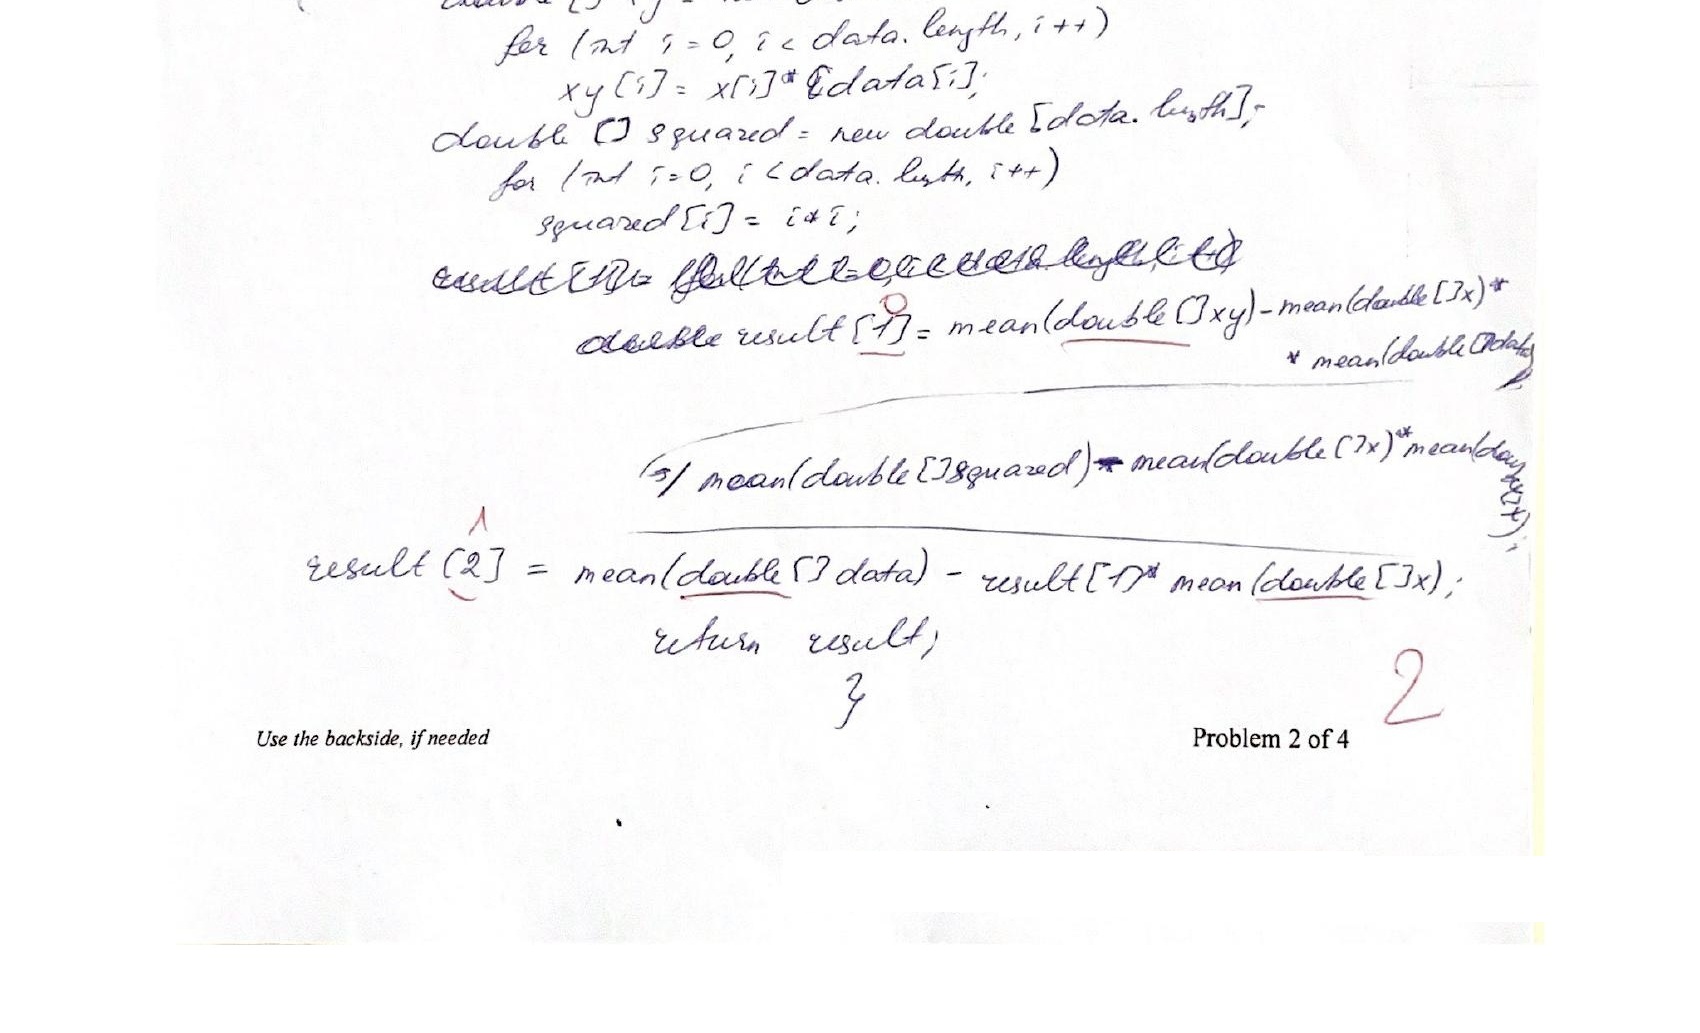 for (int i=0, i< data.length, i++)
xy[i] = x[i]* data[i];
double [] squared = new double [data.length];
for (int i=0, i<data.length, i++)
squared[i] = i*i;
0
result [1] = mean(double []xy)-mean(double []x)*
* mean(double []data)
/ mean(double []squared)- mean(double []x)*mean(
1
result [2] = mean(double [] data) - result[1]* mean (double []x);
return result;
}
2
Use the backside, if needed
Problem 2 of 4